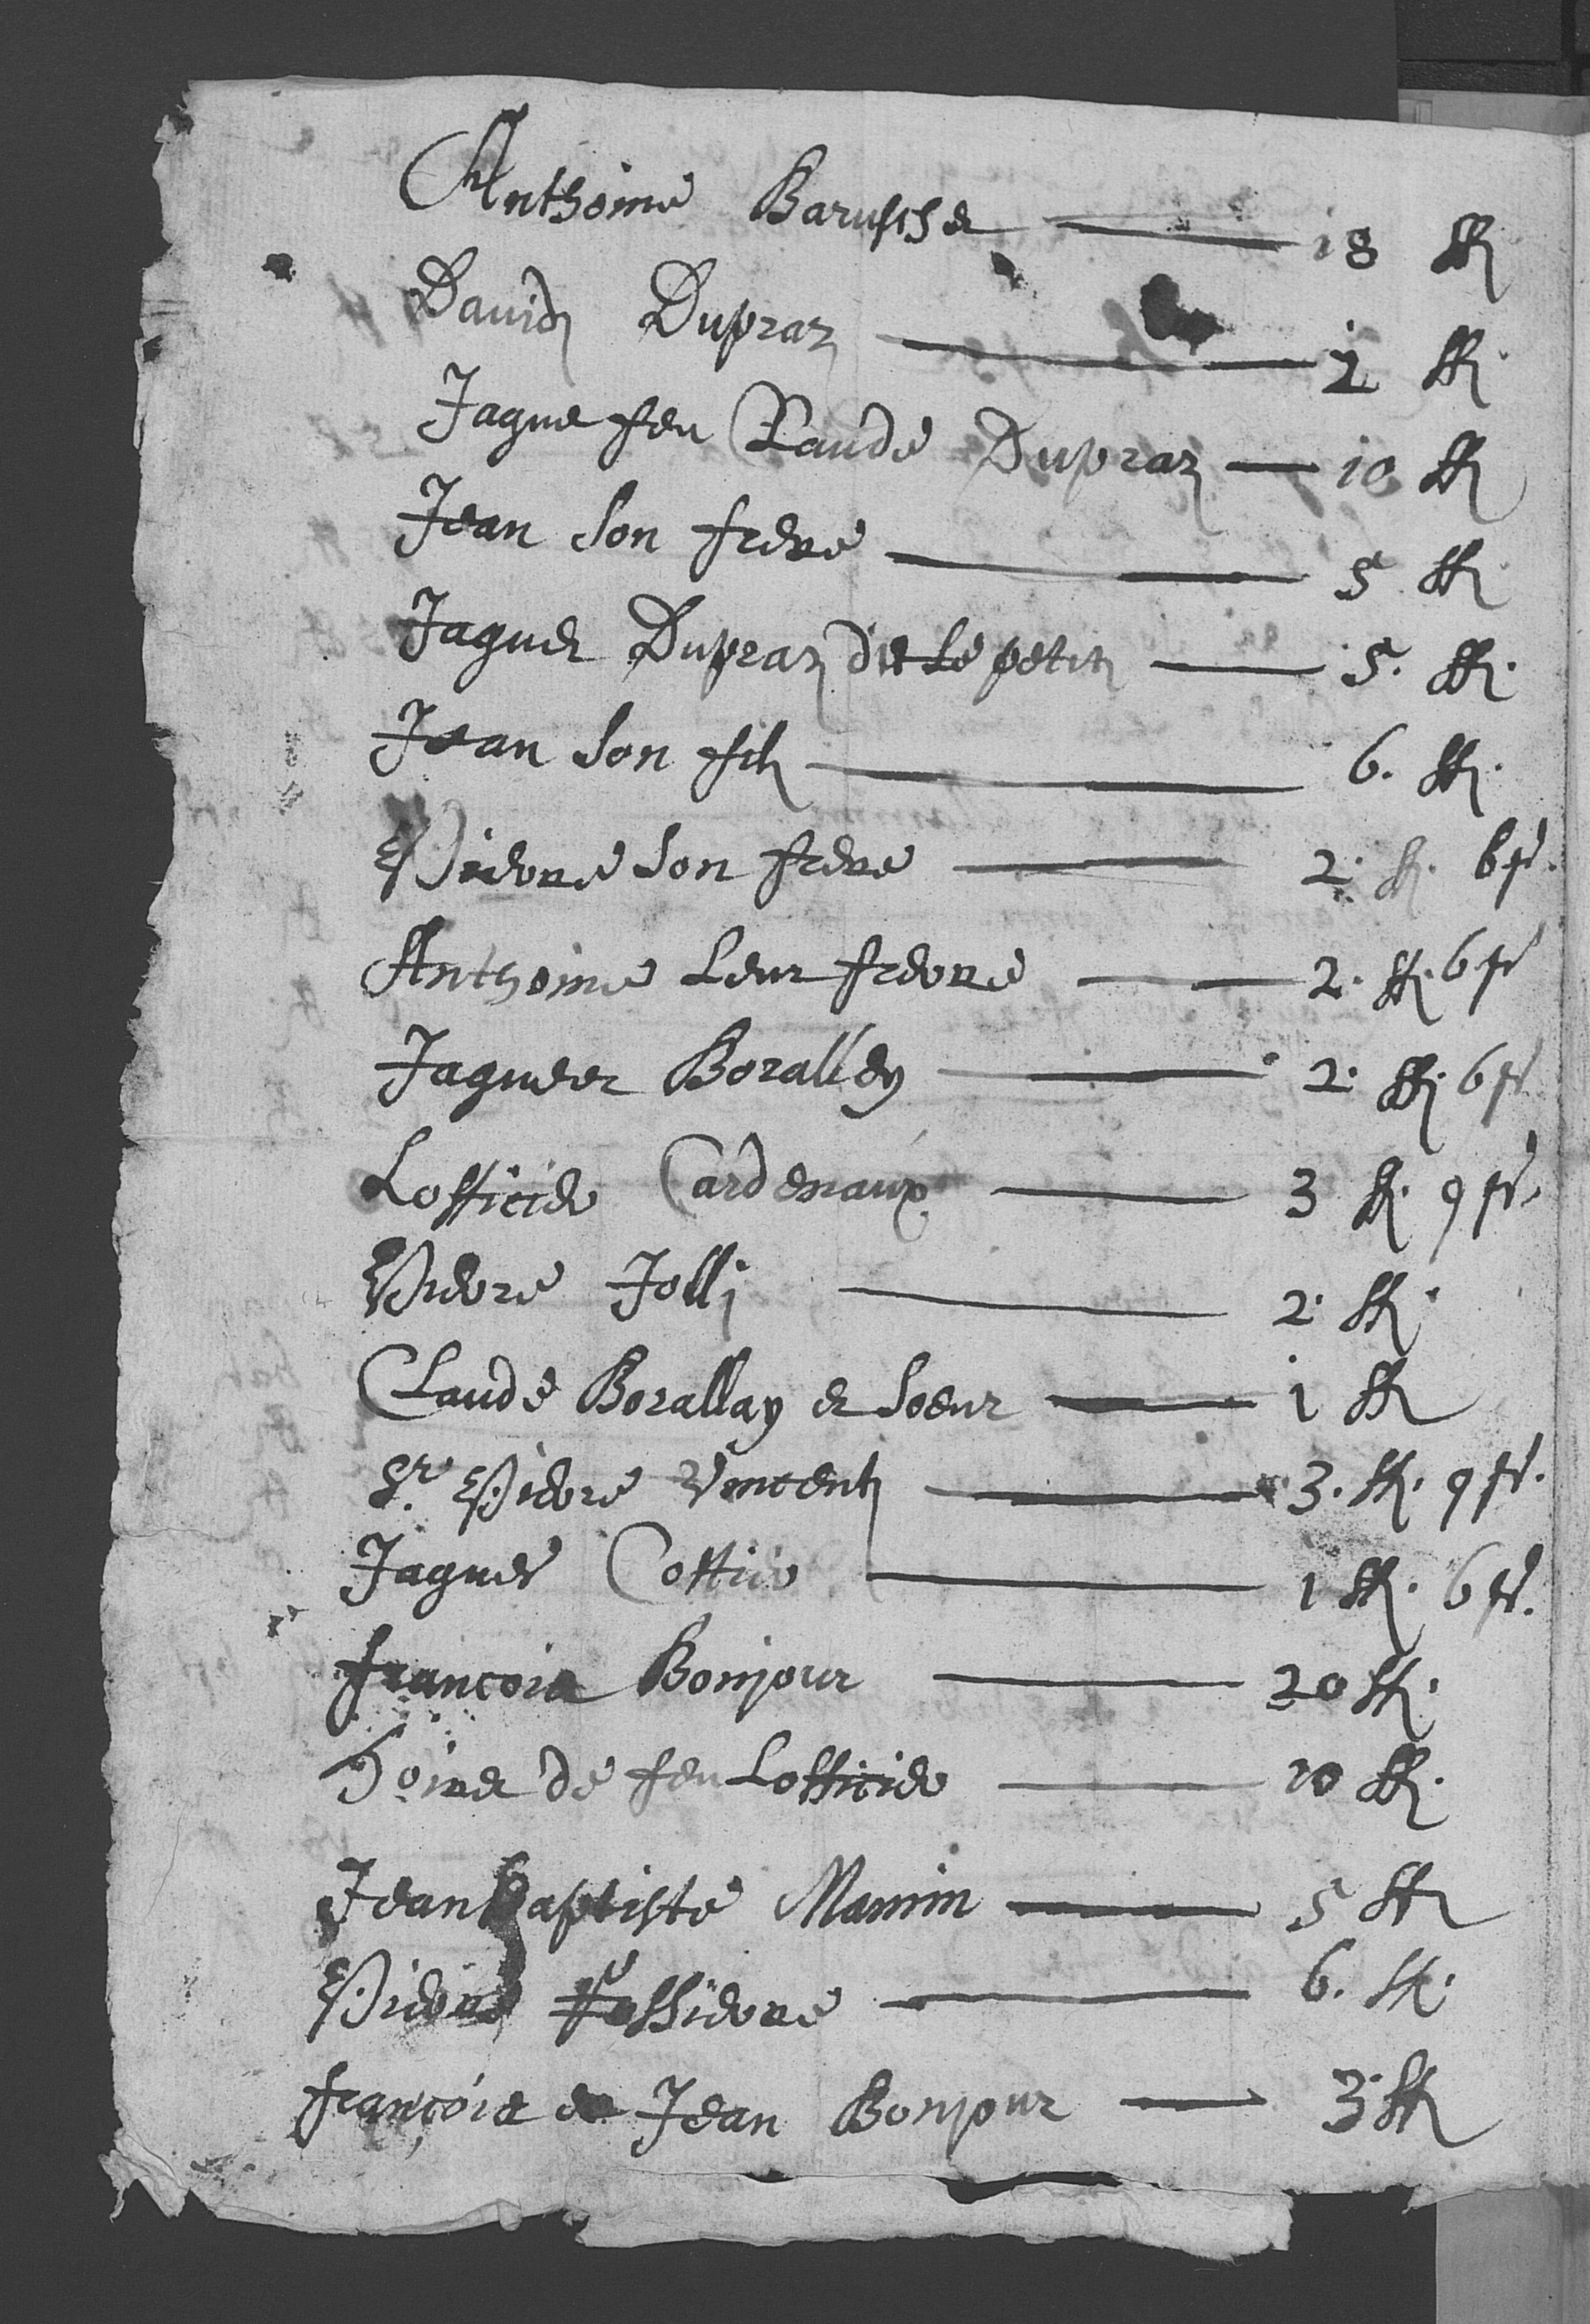 Anthoine Barusche — 18 ff
David Dupraz — 2 ff.
Jaque feu Claude Dupraz — 10 ff
Jean son frere — 5 ff.
Jaques Dupraz dit Le petit — 5. ff.
Jean son fils — 6. ff.
Pierre son frere — 2. ff. 6 ſs.
Anthoine Leur frere — 2. ff. 6 ſs
Jaques Boralley — 2. ff. 6 ſs
Lofficier Cardenaux — 3 ff. 9 ſs.
Pierre Jolli — 2. ff.
Claude Borallay et soeur — 1 ff
Sr. Pierre Vincent — 3. ff. 9 ſs.
Jaques Cottier — 1 ff. 6 ſs.
francois Bonjour — 20 ff.
hoirs de feu Lofficier — 10 ff.
Jean baptiste Mamin — 5 ff
Pierre — 6. ff.
françois de Jean Bonjour — 3 ff